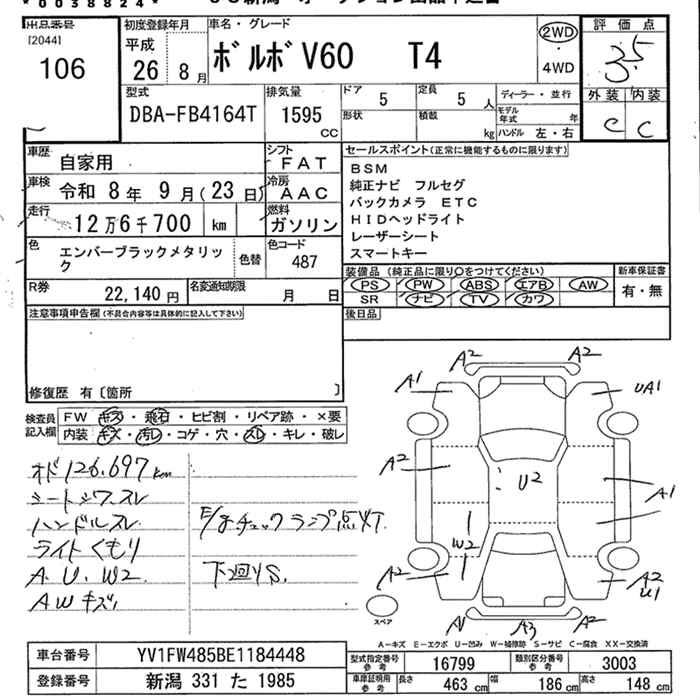 *0038824*
出品番号
[2044]
106
初度登録年月
平成
26年 8月
車名・グレード
ボルボV60 T4
2WD
4WD
評価点
3.5
外装 内装
C C
型式
DBA-FB4164T
排気量
1595 cc
ドア 5
定員 5人
形状
積載 kg
ディーラー・並行
モデル年式 年
ハンドル 左・右
車歴 自家用
シフト FAT
車検 令和 8年 9月(23日)
冷房 AAC
走行 12万6千700 km
燃料 ガソリン
色 エンバーブラックメタリック
色替
色コード 487
R券 22,140円
名変通知期限 月 日
セールスポイント(正常に機能するものに限ります)
BSM
純正ナビ フルセグ
バックカメラ ETC
HIDヘッドライト
レーザーシート
スマートキー
装備品(純正品に限り○をつけてください)
PS PW ABS エアB AW
SR ナビ TV カワ
新車保証書
有・無
後日品
注意事項申告欄(不具合内容等は具体的に記入して下さい)
修復歴 有〔箇所 〕
検査員記入欄
FW キズ・飛石・ヒビ割・リペア跡・×要
内装 キズ・汚レ・コゲ・穴・スレ・キレ・破レ
オド126.697km
シートシワスレ
ハンドルスレ
ライトくもり
A.U.W2
AWキズ
E/gチェックランプ点灯
下廻りS.
A2 A2
A1 UA1
A2 U2 A1
W2
A2 A2
A1 A3 A2
スペア
A-キズ E-エクボ U-凹み W-補修跡 S-サビ C-腐食 XX-交換済
車台番号 YV1FW485BE1184448
登録番号 新潟 331 た 1985
型式指定番号 16799
類別区分番号 3003
車庫証明用参考
長さ 463cm 幅 186cm 高さ 148cm